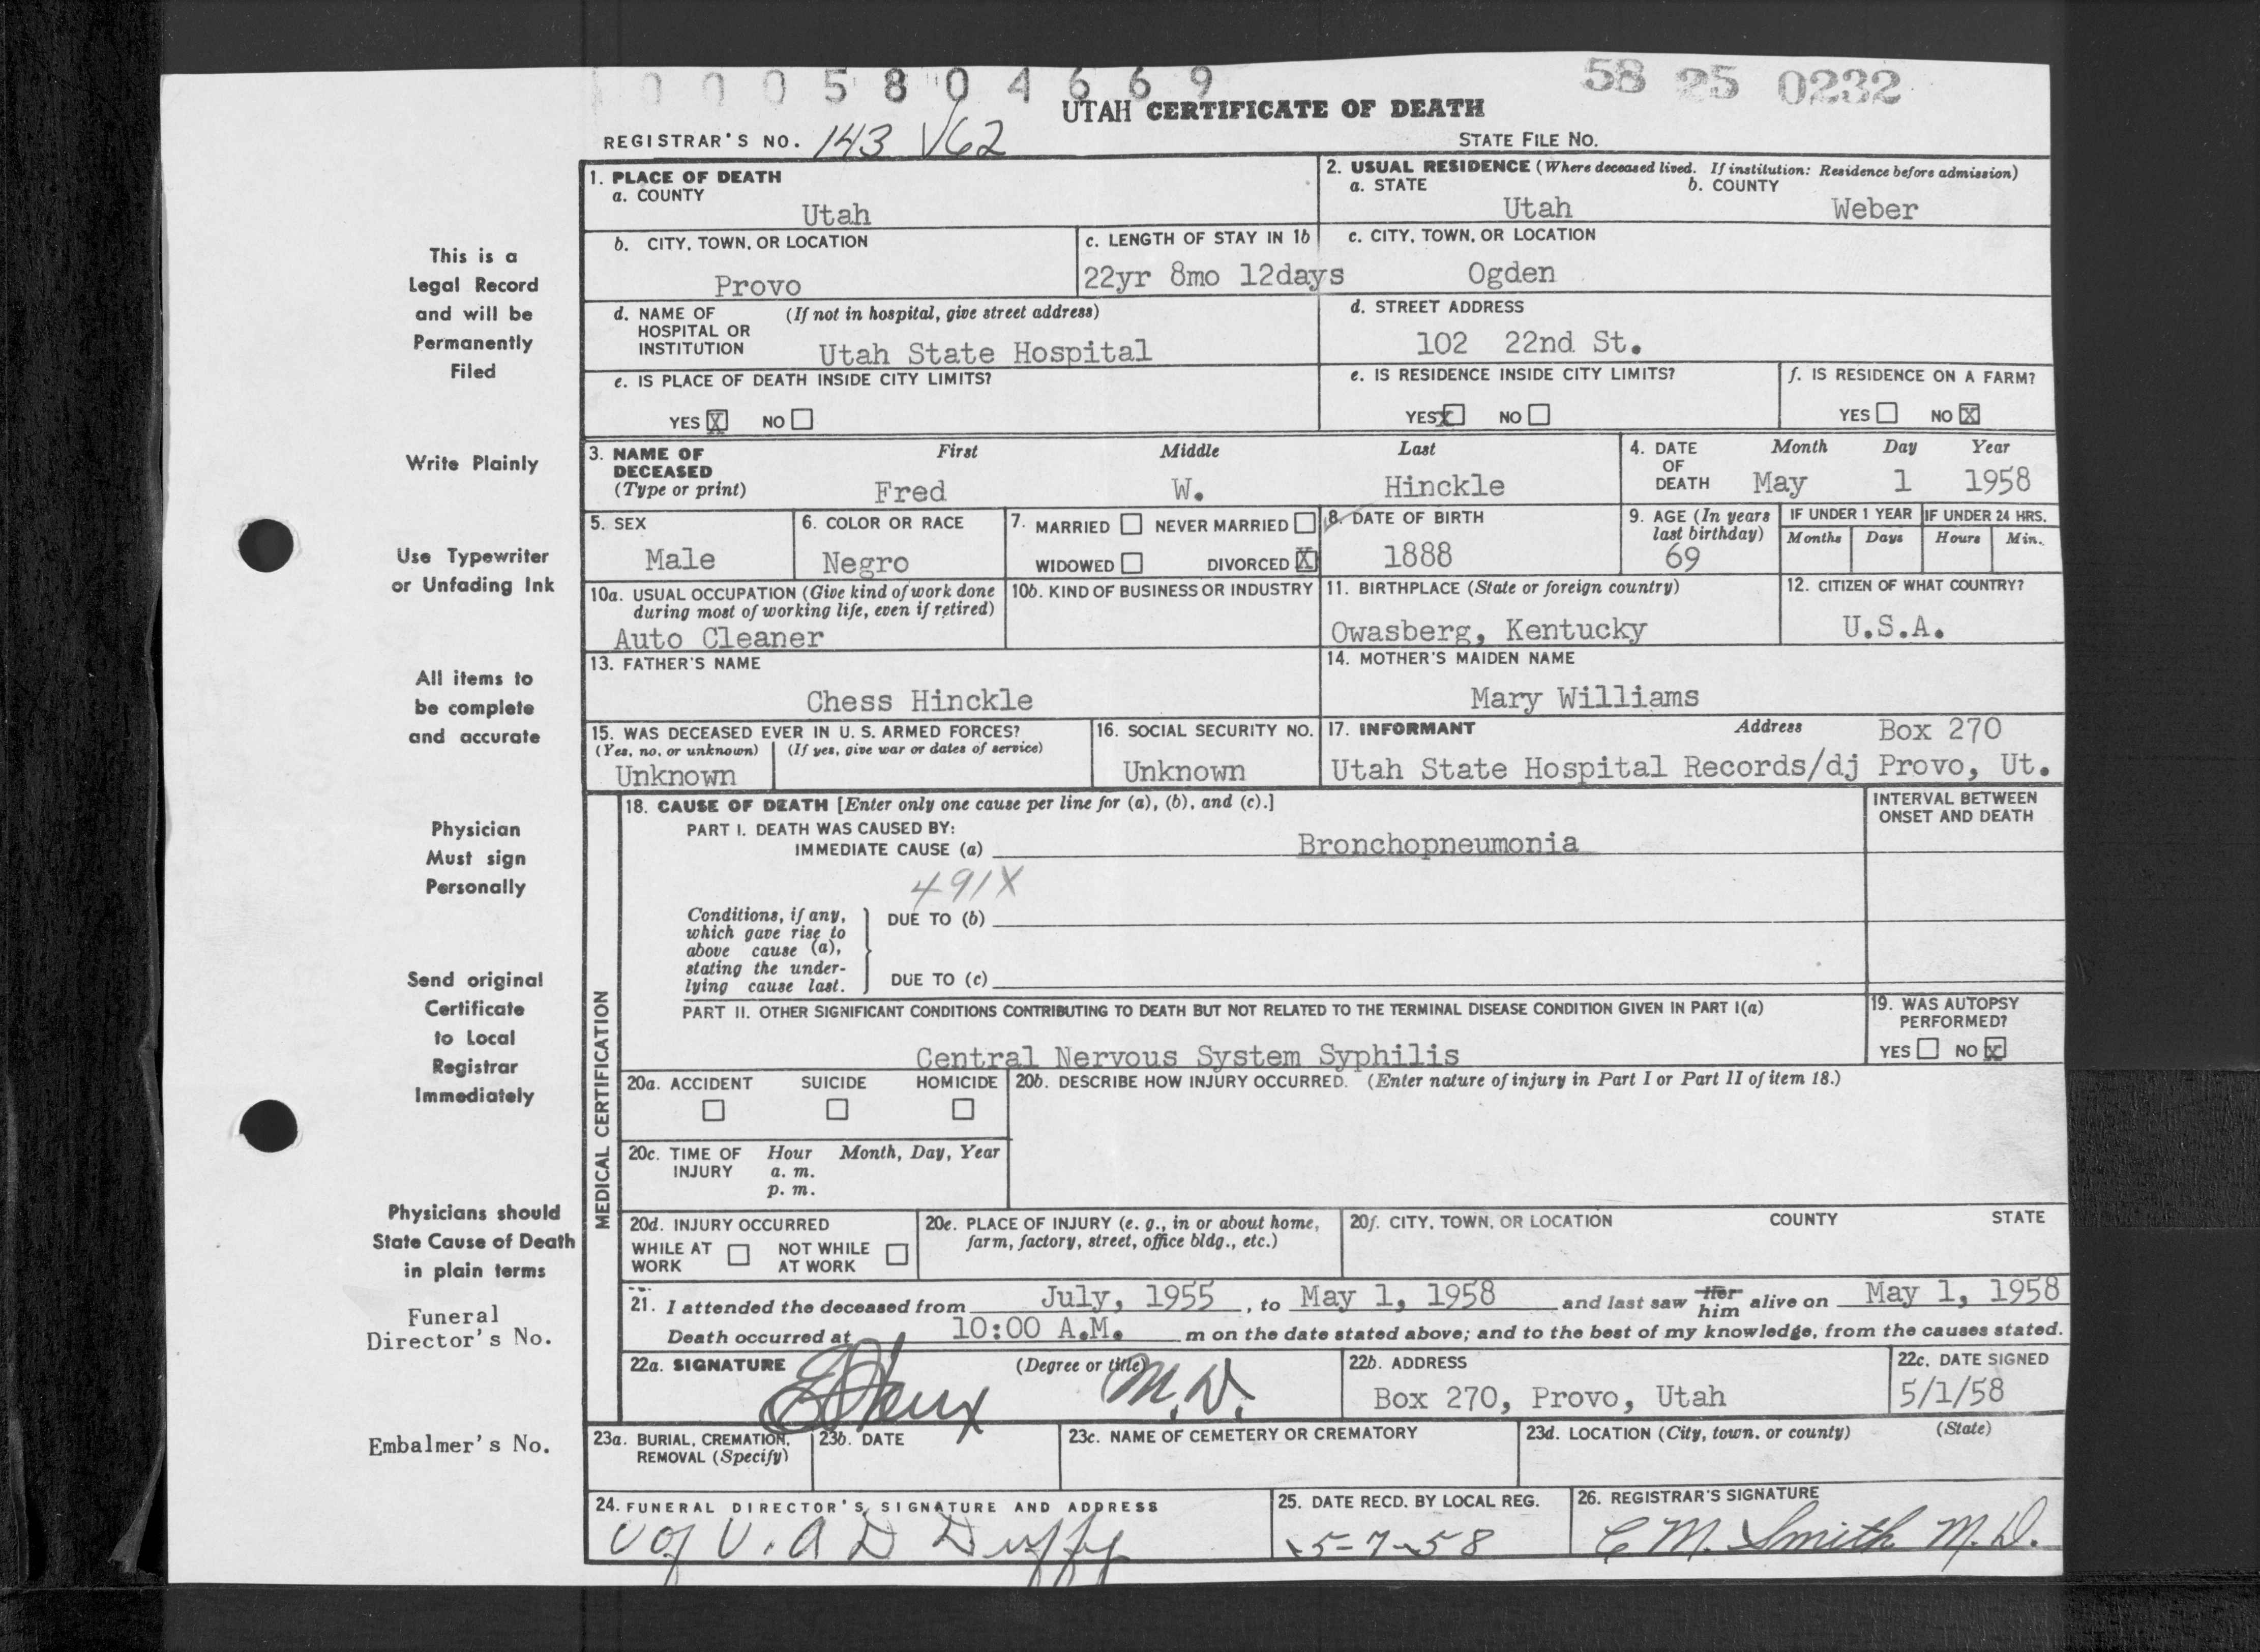 0005804669
58 25 0232
UTAH CERTIFICATE OF DEATH
REGISTRAR'S NO. 143 V62
STATE FILE NO.
This is a
Legal Record
and will be
Permanently
Filed
Write Plainly
Use Typewriter
or Unfading Ink
All items to
be complete
and accurate
Physician
Must sign
Personally
Send original
Certificate
to Local
Registrar
Immediately
Physicians should
State Cause of Death
in plain terms
Funeral
Director's No.
Embalmer's No.
1. PLACE OF DEATH
a. COUNTY
Utah
2. USUAL RESIDENCE (Where deceased lived. If institution: Residence before admission)
a. STATE b. COUNTY
Utah Weber
b. CITY, TOWN, OR LOCATION
Provo
c. LENGTH OF STAY IN 1b
22yr 8mo 12days
c. CITY, TOWN, OR LOCATION
Ogden
d. NAME OF (If not in hospital, give street address)
HOSPITAL OR
INSTITUTION Utah State Hospital
d. STREET ADDRESS
102 22nd St.
e. IS PLACE OF DEATH INSIDE CITY LIMITS?
YES X NO
e. IS RESIDENCE INSIDE CITY LIMITS?
YES X NO
f. IS RESIDENCE ON A FARM?
YES NO X
3. NAME OF First Middle Last
DECEASED
(Type or print) Fred W. Hinckle
4. DATE Month Day Year
OF
DEATH May 1 1958
5. SEX
Male
6. COLOR OR RACE
Negro
7. MARRIED NEVER MARRIED
WIDOWED DIVORCED X
8. DATE OF BIRTH
1888
9. AGE (In years
last birthday)
69
IF UNDER 1 YEAR IF UNDER 24 HRS.
Months Days Hours Min.
10a. USUAL OCCUPATION (Give kind of work done
during most of working life, even if retired)
Auto Cleaner
10b. KIND OF BUSINESS OR INDUSTRY
11. BIRTHPLACE (State or foreign country)
Owasberg, Kentucky
12. CITIZEN OF WHAT COUNTRY?
U.S.A.
13. FATHER'S NAME
Chess Hinckle
14. MOTHER'S MAIDEN NAME
Mary Williams
15. WAS DECEASED EVER IN U. S. ARMED FORCES?
(Yes, no, or unknown) (If yes, give war or dates of service)
Unknown
16. SOCIAL SECURITY NO.
Unknown
17. INFORMANT Address Box 270
Utah State Hospital Records/dj Provo, Ut.
MEDICAL CERTIFICATION
18. CAUSE OF DEATH [Enter only one cause per line for (a), (b), and (c).]
INTERVAL BETWEEN
ONSET AND DEATH
PART I. DEATH WAS CAUSED BY:
IMMEDIATE CAUSE (a) Bronchopneumonia
491X
Conditions, if any,
which gave rise to
above cause (a),
stating the under-
lying cause last.
DUE TO (b)
DUE TO (c)
PART II. OTHER SIGNIFICANT CONDITIONS CONTRIBUTING TO DEATH BUT NOT RELATED TO THE TERMINAL DISEASE CONDITION GIVEN IN PART I(a)
Central Nervous System Syphilis
19. WAS AUTOPSY
PERFORMED?
YES NO X
20a. ACCIDENT SUICIDE HOMICIDE
20b. DESCRIBE HOW INJURY OCCURRED. (Enter nature of injury in Part I or Part II of item 18.)
20c. TIME OF Hour Month, Day, Year
INJURY a. m.
p. m.
20d. INJURY OCCURRED
WHILE AT NOT WHILE
WORK AT WORK
20e. PLACE OF INJURY (e. g., in or about home,
farm, factory, street, office bldg., etc.)
20f. CITY, TOWN, OR LOCATION COUNTY STATE
21. I attended the deceased from July, 1955, to May 1, 1958 and last saw her him alive on May 1, 1958
Death occurred at 10:00 A.M. m on the date stated above; and to the best of my knowledge, from the causes stated.
22a. SIGNATURE (Degree or title)
M.D.
22b. ADDRESS
Box 270, Provo, Utah
22c. DATE SIGNED
5/1/58
23a. BURIAL, CREMATION,
REMOVAL (Specify)
23b. DATE
23c. NAME OF CEMETERY OR CREMATORY
23d. LOCATION (City, town, or county) (State)
24. FUNERAL DIRECTOR'S SIGNATURE AND ADDRESS
U of U. A D Duffy
25. DATE RECD. BY LOCAL REG.
5-7-58
26. REGISTRAR'S SIGNATURE
C M. Smith M.D.